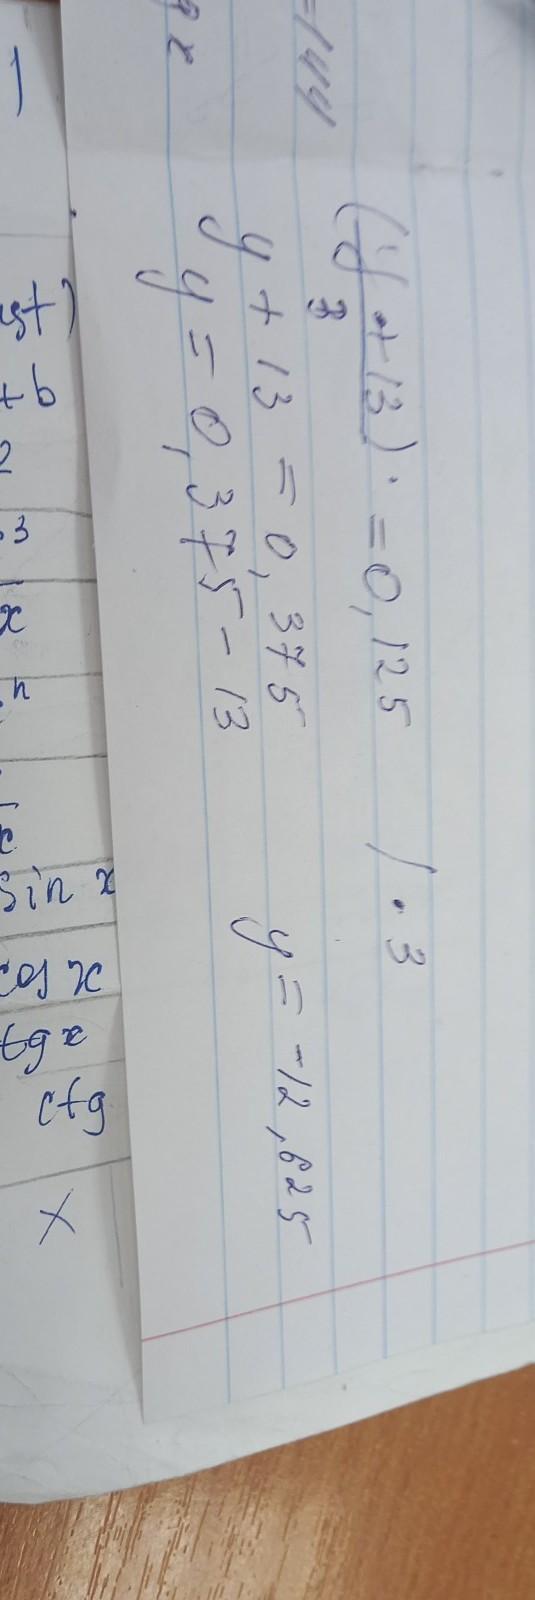 =144
x
(y + 13) · = 0,125 / · 3
3
y + 13 = 0,375
y = 0,375 - 13 y = -12,625
+ b
2
3
x
n
sin x
cos x
tg x
ctg
x